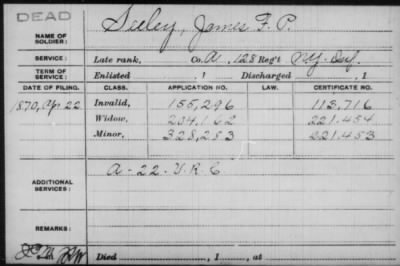 DEAD
NAME OF SOLDIER: Seeley, James F. P.
SERVICE: Late rank, Co. A, 128 Reg't N.Y. Inf.
TERM OF SERVICE: Enlisted , 1 Discharged , 1
DATE OF FILING. CLASS. APPLICATION NO. LAW. CERTIFICATE NO.
1870, Ap. 22 Invalid, 155,296 113,716
Widow, 234,162 221.454
Minor, 328,283 221.453
ADDITIONAL SERVICES: A - 22 - V. R. C
REMARKS:
Died , 1 , at